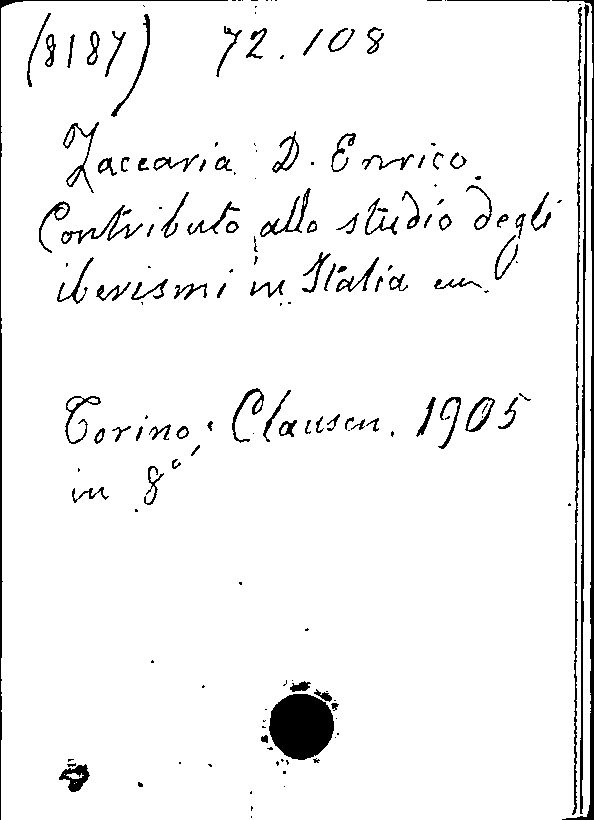 (8187) 72.108
Zaccaria D. Enrico.
Contributo allo studio degli
iberismi in Italia
Torino; Clausen. 1905
in 8°